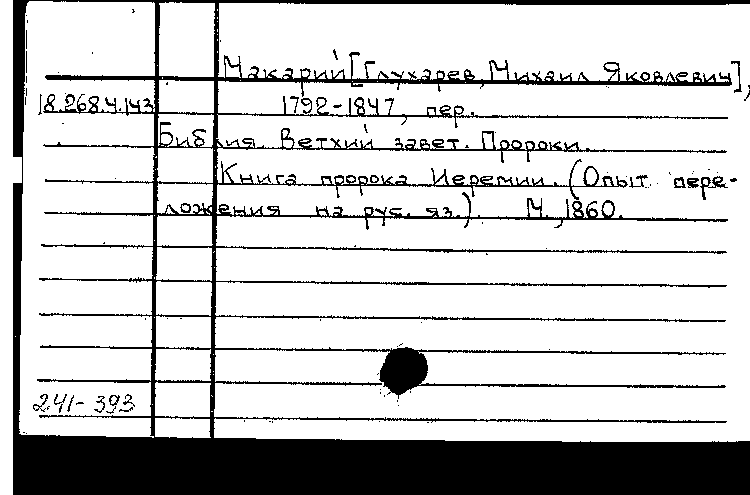 Макарий [Глухарев, Михаил Яковлевич],
18.268.4.143 1792-1847, пер.
Библия. Ветхий завет. Пророки.
Книга пророка Иеремии. (Опыт пере-
ложения на рус. яз.). М., 1860.
241-393